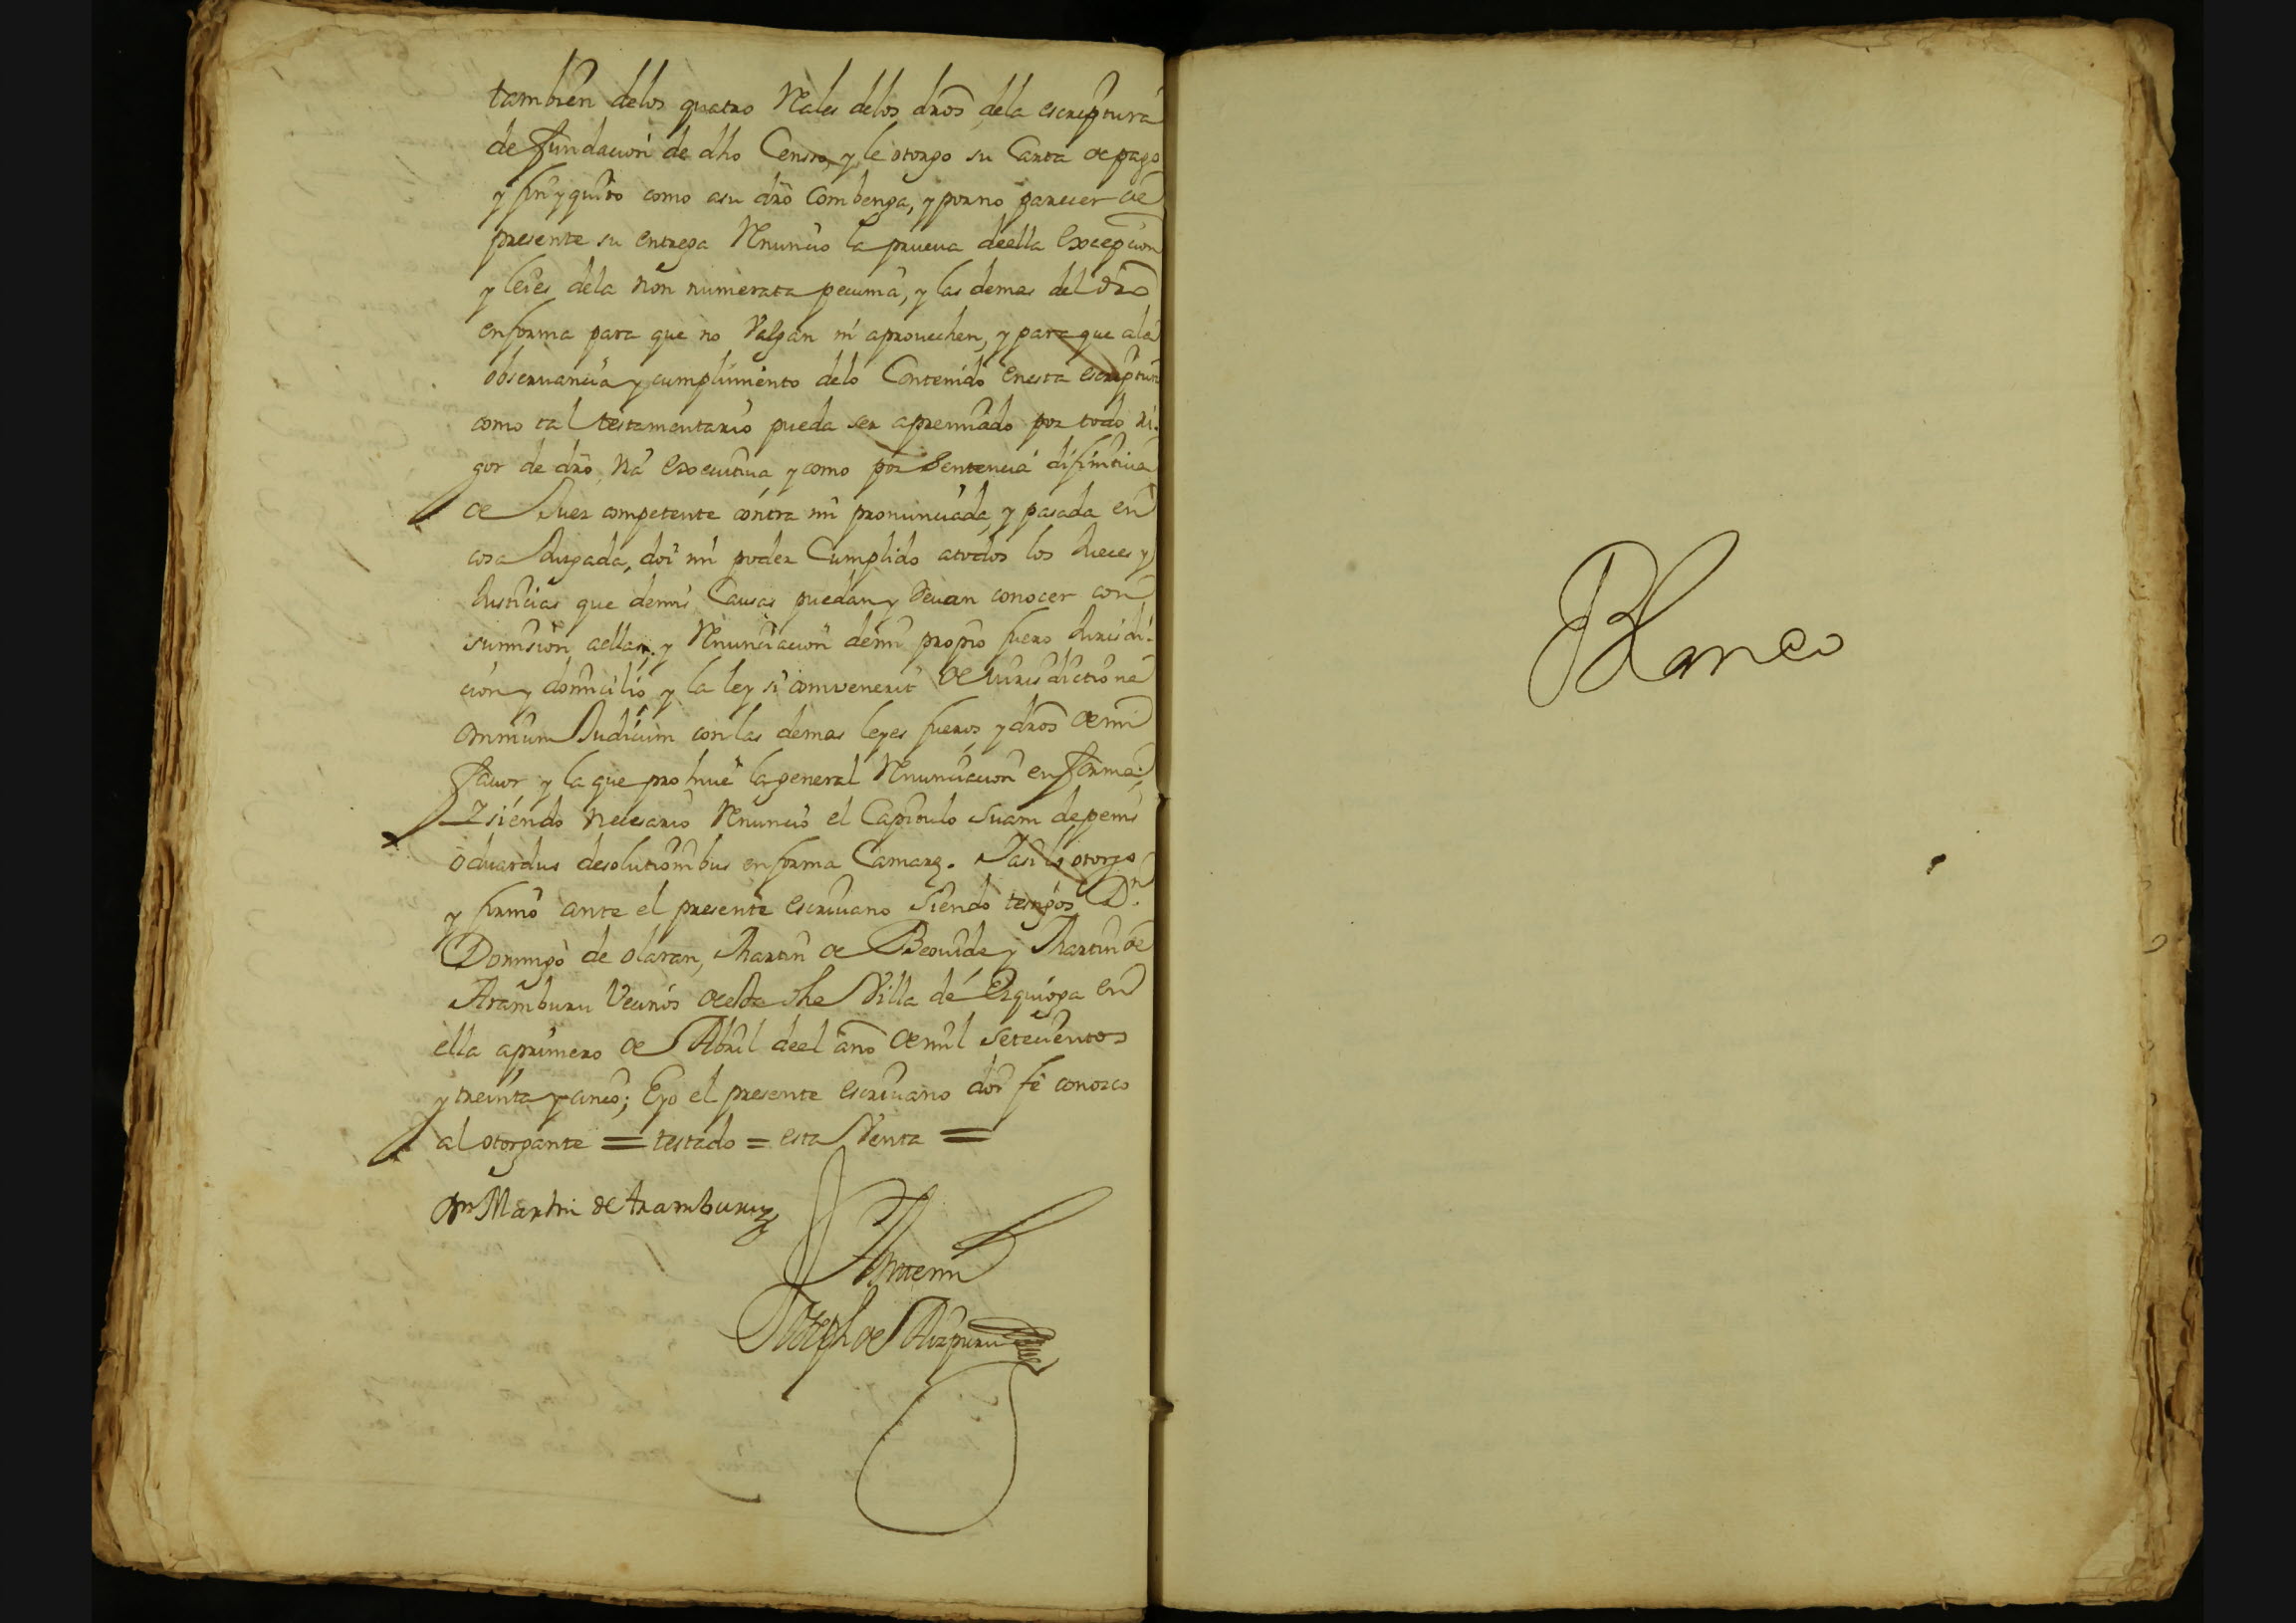 tambien delos quatro Reales delos dros dela escriptura
de fundacion de dho Censo, y le otorgo su Carta de pago
y fin y quito como asu dro combenga, y por no parecer de
presente su entrega Renuncio la prueua deella excepcion
y leies dela non numerata pecunia, y las demas del dro
en forma para que no Valgan ni aprouechen, y para que ala
obseruancia y cumplimiento delo Contenido enesta escriptura
como tal testamentario pueda ser apremiado por todo ri-
gor de dro, Via executiua y como por Sentencia difinitiua
de Juez competente contra mi pronunciada, y pasada en
cosa Jusgada, doi mi poder Cumplido atodos los Jueces y
Justicias que demis Causas puedan y deuan conocer con
sumision aellas. y Renunciacion demi propio fuero Jurisdi-
cion y domicilio, y la ley si convenerit de iurisdictione
omnium Judicum con las demas leyes fueros y dros de mi
fauor y la que prohiue la general Renunciacion en forma;
Y siendo necesario Renuncio el Capitulo Suam de penis
oduardus desolutionibus en forma Camarę. Y asi lo otorgo
y firmo ante el presente escriuano siendo testigos Dn
Domingo de olaran, Martin de Beouide y Martin de
Aramburu Vecinos de esta dha Villa de Ezquioga en
ella aprimero de Abril deel año de mil setecientos
y treinta y cinco; E yo el presente escriuano doi fe conozco
al otorgante = testado = esta Venta =
Dn Martin de Aramburu
Ante mi
Joseph de Aizpuru
Blanco